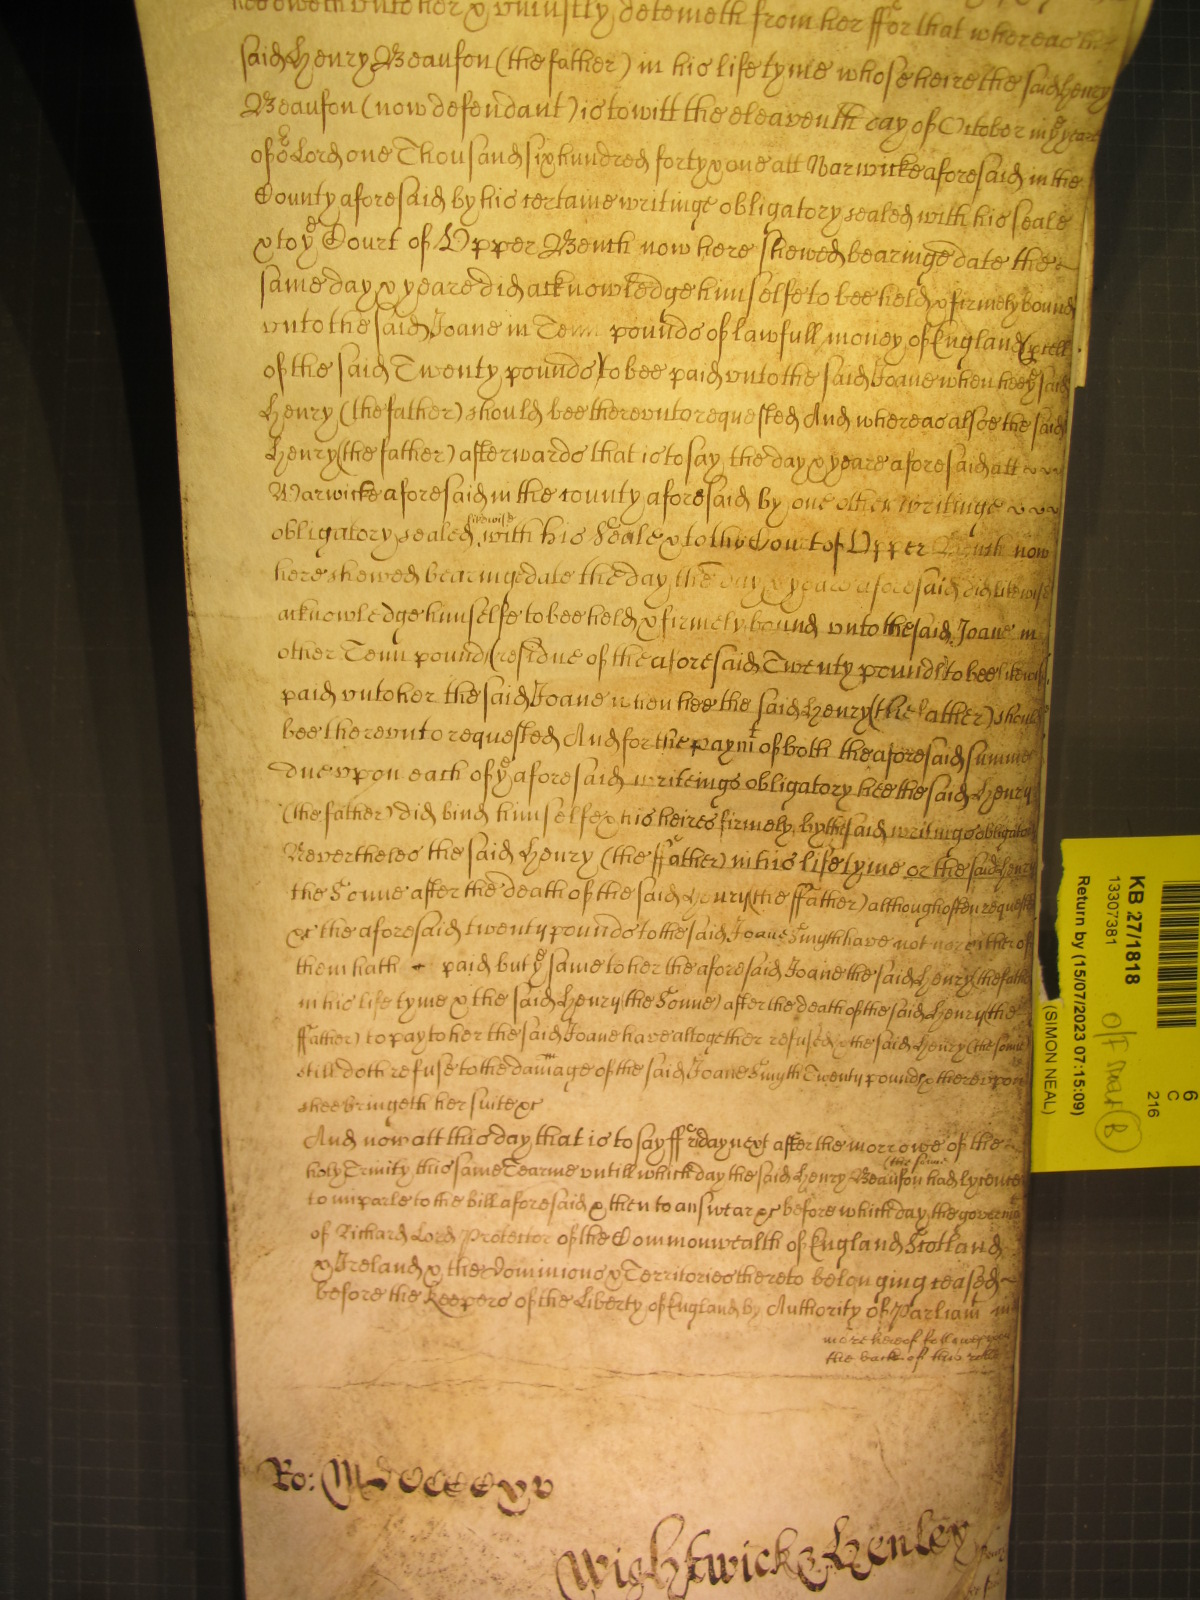 hee oweth unto her & uniustly deteineth from her ffor that whereas the
said Henry Beaufon (the father) in his life tyme whose heire the said Henry
Beaufon (now defendant) is to witt the eleaventh day of October in ye yeare
of or Lord one Thousand six hundred forty & one att Warwicke aforesaid in the
County aforesaid by his certaine writinge obligatory sealed with his seale
& to ye Court of Upper Bench now here shewed bearinge date the
same day & yeare did acknowledge himselfe to bee held & firmely bound
unto the said Joane in Tenn pounds of lawfull money of England (pcell
of the said Twenty pounds) to bee paid unto the said Joane when hee ye said
Henry (the father) should bee thereunto requested And whereas alsoe the said
Henry (the father) afterwards that is to say the day & yeare aforesaid att
Warwicke aforesaid in the county aforesaid by one other writinge
obligatory sealed likewise with his Seale & to the Court of Upper Bench now
here shewed bearinge date the day the day & yeare aforesaid did likewise
acknowledge himselfe to bee held & firmely bound unto the said Joane in
other Tenn pound (residue of the aforesaid Twenty pounds) to bee likewise
paid unto her the said Joane when hee the said Henry (the father) should
bee thereunto requested And for the paymt of both the aforesaid summes
due upon each of ye aforesaid writeings obligatory hee the said Henry
(the father) did bind himselfe & his heires firmely by the said writings obligatory
Nevertheles the said Henry (the ffather) in his life tyme or the said Henry
the Sonne after the death of the said Henry (the ffather) although often requested
&c the aforesaid twenty pounds to the said Joane Smyth have not nor either of
them hath paid but ye same to her the aforesaid Joane the said Henry (the father
in his life tyme & the said Henry (the Sonne) after the death of the said Henry (the
ffather) to pay to her the said Joane have altogether refused & the said Henry (the sonne)
still doth refuse to the damage of the said Joane Smyth Twenty pounds & thereupon
shee bringeth her suite &c
And now att this day that is to say ffriday next after the morrowe of the
holy Trinity this same Tearme untill which day the said Henry Beaufon (the sonne had lycence
to imparle to the bill aforesaid & then to answear &c before which day the governmt
of Richard Lord Protector of the Commonwealth of England Scotland
& Ireland & the Dominions & Territories thereto belonging ceased
before the Keepers of the Liberty of England by Authority of Parliamt
more hereof followes on
the back of this rolle
Ro: MDCCCCxv
Wightwick & Henley
KB 27/1818
13307381
Return by (15/07/2023 07:15:09)
(SIMON NEAL)
6
C
216